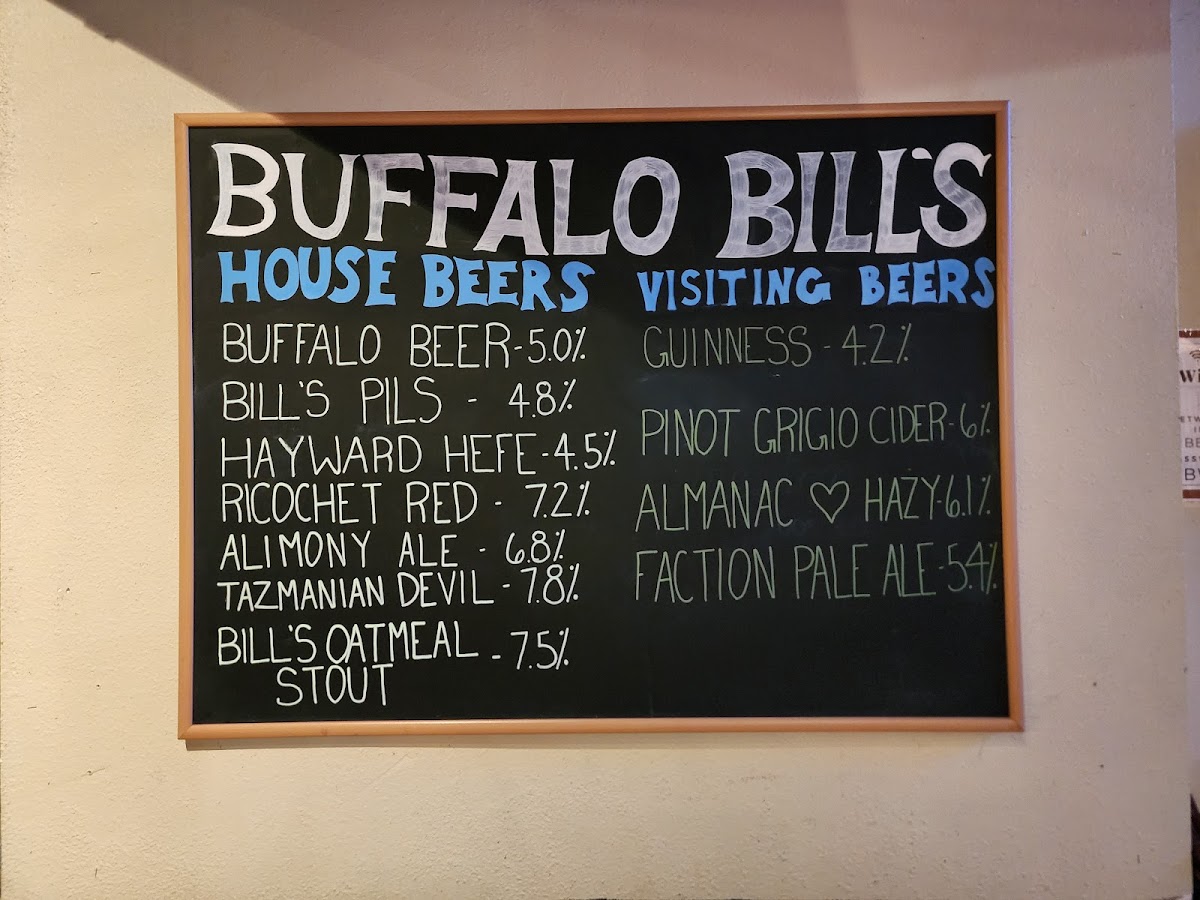 BUFFALO BILL'S
HOUSE BEERS
BUFFALO BEER-5.0%
BILL'S PILS - 4.8%
HAYWARD HEFE-4.5%
RICOCHET RED - 7.2%
ALIMONY ALE - 6.8%
TAZMANIAN DEVIL - 7.8%
BILL'S OATMEAL - 7.5%
STOUT
VISITING BEERS
GUINNESS - 4.2%
PINOT GRIGIO CIDER-6%
ALMANAC ♡ HAZY-6.1%
FACTION PALE ALE-5.4%